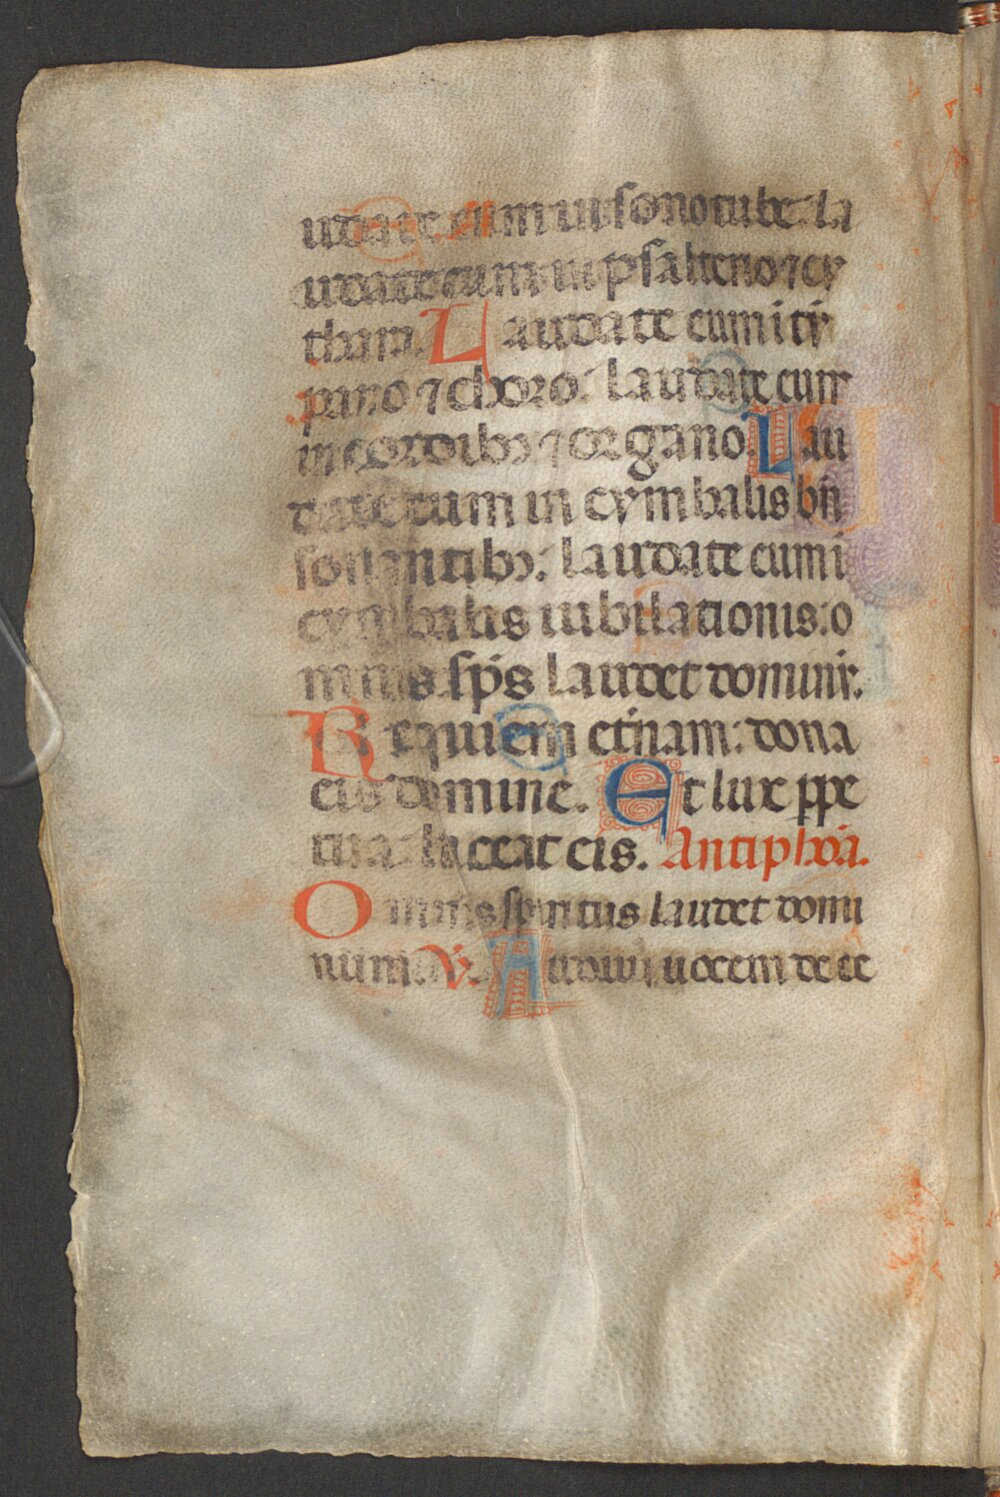 udate eum in sono tube: la
udate eum in psalterio ⁊ cy
thara. Laudate eum i ty
pano ⁊ choro: laudate eum
in cordibꝫ ⁊ organo. Lau
date eum in cymbalis bn̄
sonantibꝫ: laudate eum i
cymbalis iubilationis: o
mnis sp̄s laudet dominū.
Requiem et̄nam: dona
eis domine. Et lux ꝑpe
tua: luceat eis. Antiphōa.
Omnis spiritus laudet domi
num. ℣. Audiui uocem de ce